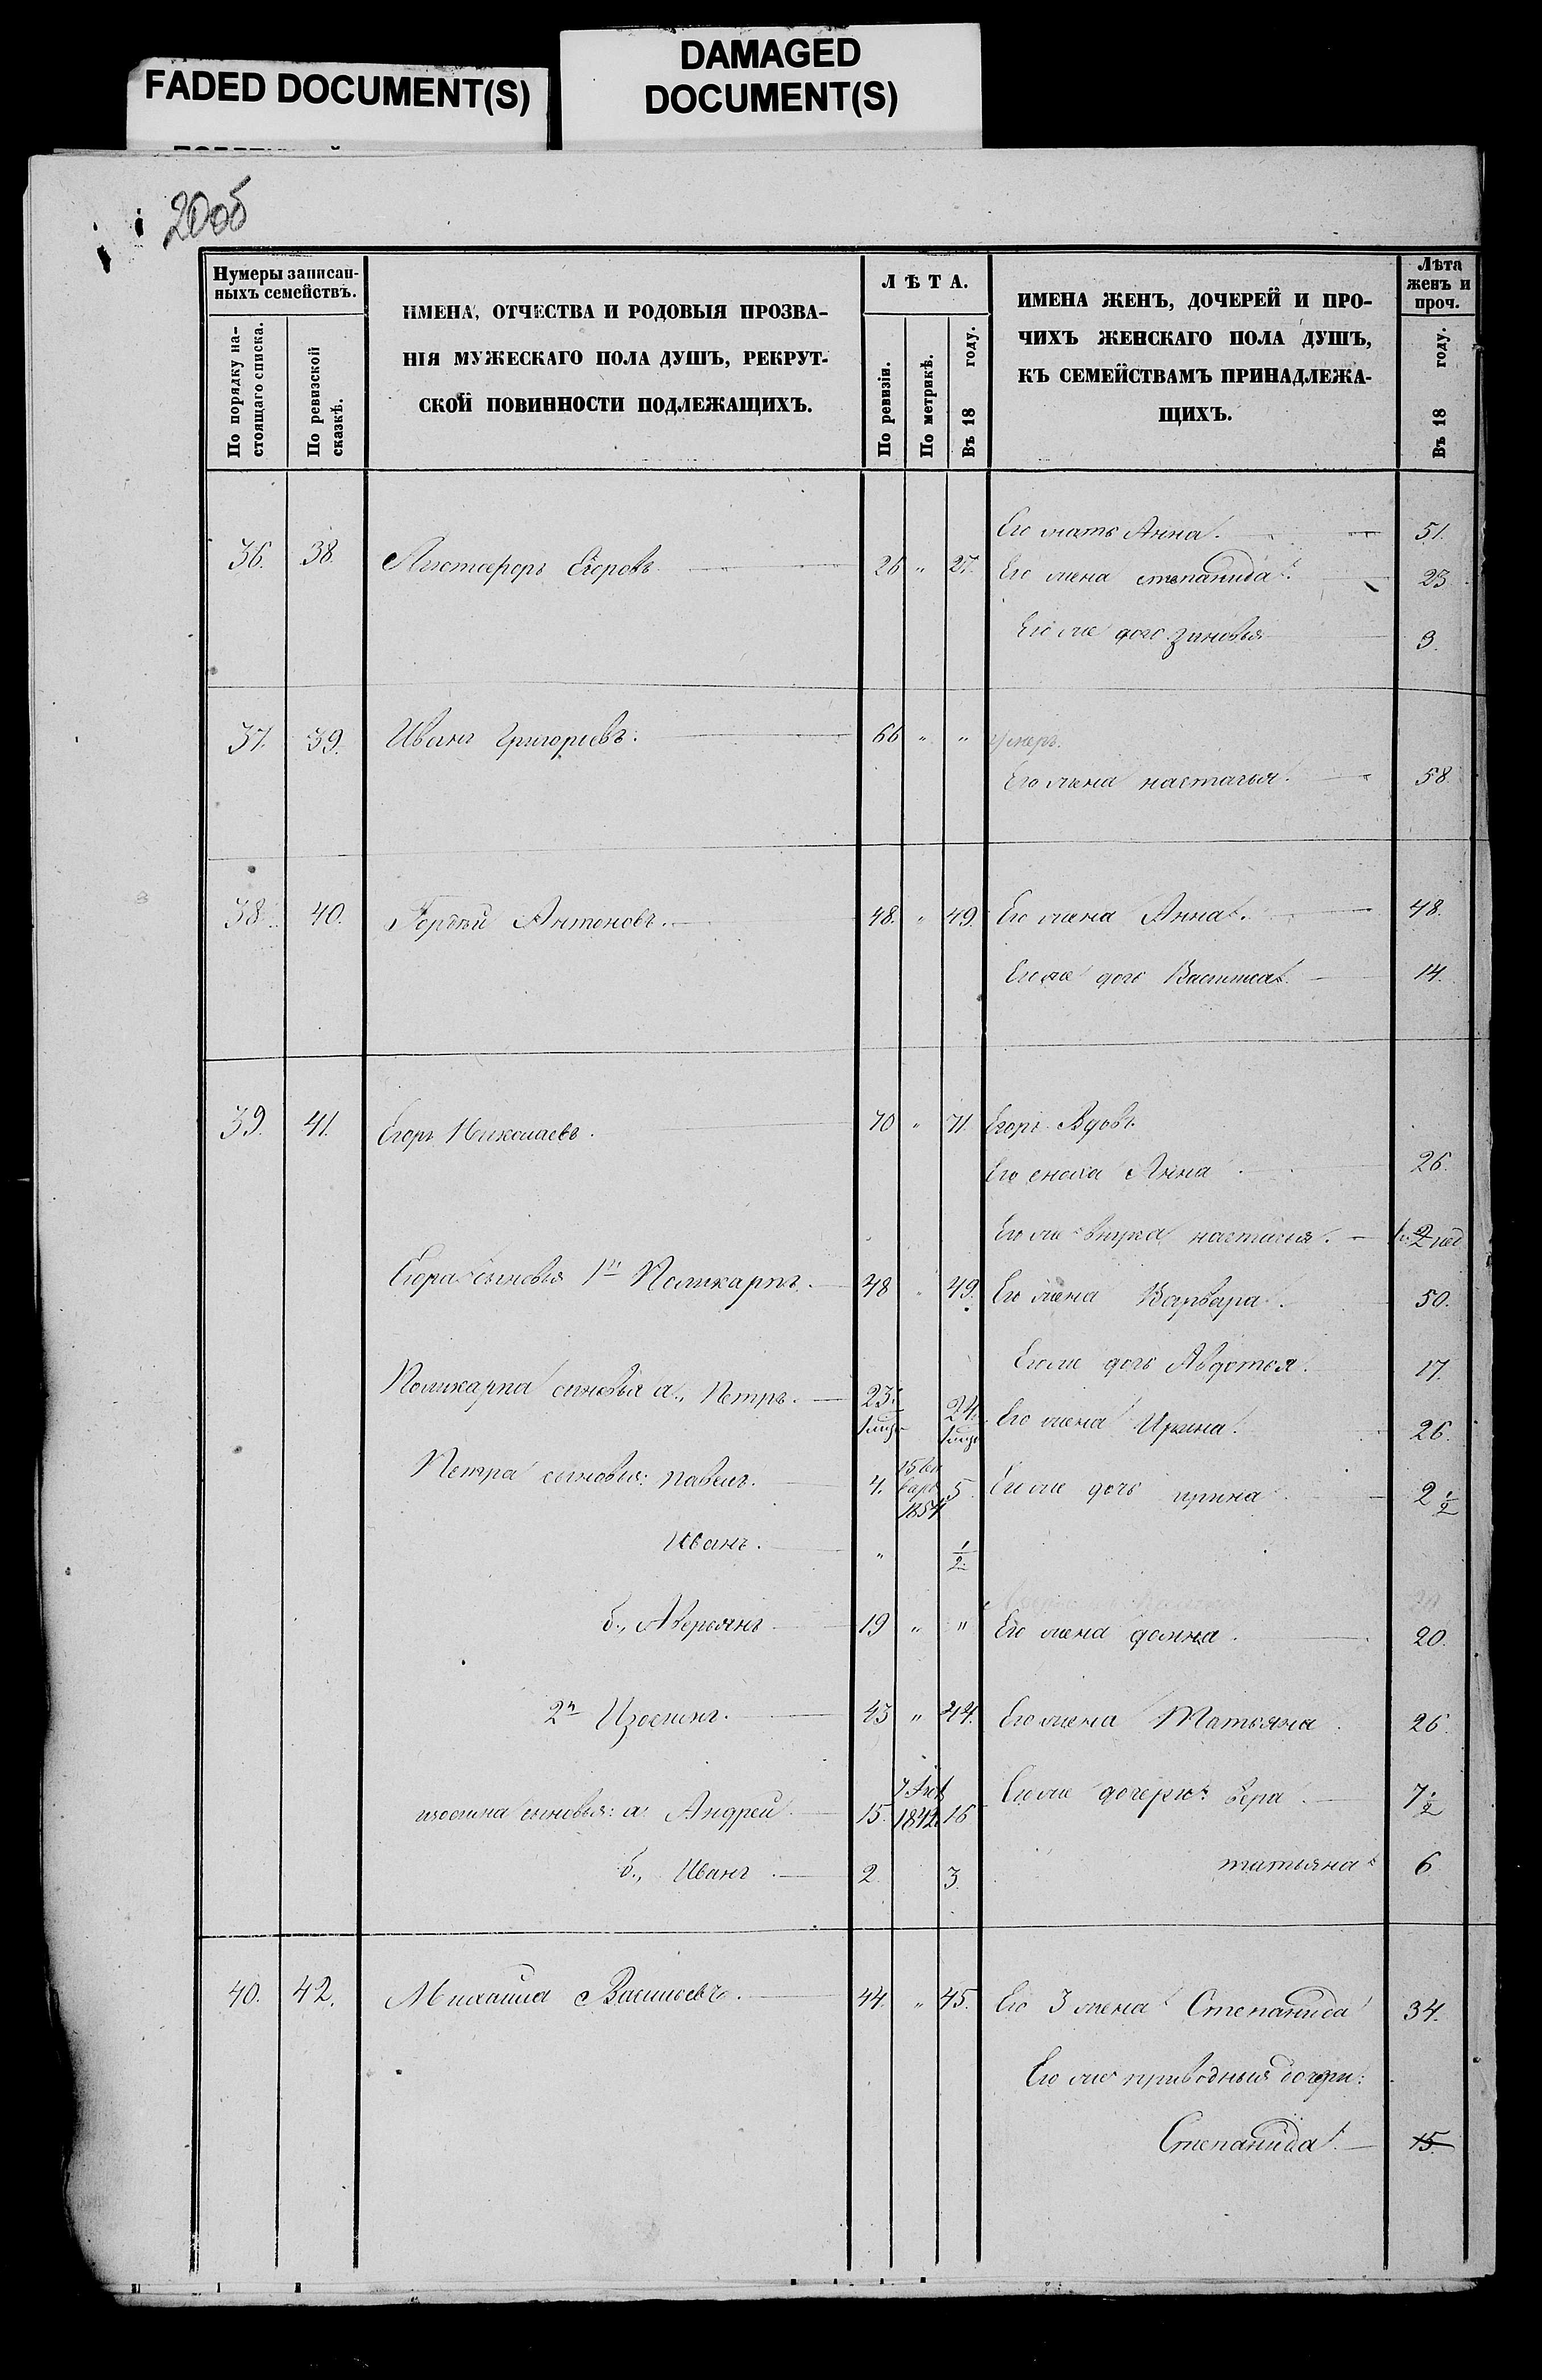 FADED DOCUMENT(S)
DAMAGED
DOCUMENT(S)
20об
Нумеры записан-
ныхъ семействъ.
По порядку на-
стоящаго списка.
По ревизской
сказкѣ.
ИМЕНА, ОТЧЕСТВА И РОДОВЫЯ ПРОЗВА-
НІЯ МУЖЕСКАГО ПОЛА ДУШЪ, РЕКРУТ-
СКОЙ ПОВИННОСТИ ПОДЛЕЖАЩИХЪ.
ЛѢТА.
По ревизіи.
По метрикѣ.
Въ 18 году.
ИМЕНА ЖЕНЪ, ДОЧЕРЕЙ И ПРО-
ЧИХЪ ЖЕНСКАГО ПОЛА ДУШЪ,
КЪ СЕМЕЙСТВАМЪ ПРИНАДЛЕЖА-
ЩИХЪ.
Лѣта
женъ и
проч.
Въ 18 году.
Его мать Анна. 51.
36. 38. Егоровъ 26 " 27. Его жена степанида. 23
Его же дочь зиновья 3.
37. 39. Иванъ Григорьевъ. 66 " " умеръ.
Его жена настасья. 58
38. 40. Гордѣй Антоновъ. 48. " 49. Его жена Анна. 48.
Его же дочь Василиса. 14.
39. 41. Егоръ Николаевъ. 70 " 71. Егоръ Вдовъ.
Его сноха Анна 26.
Его же внука настасья. 2 нед
Егора сыновья 1й Поликарпъ. 48 " 49. Его жена Варвара. 50.
Его же дочь Авдотья. 17.
Поликарпа сыновья а., Петръ. 23. 24. Его жена Ирина. 26.
Петра сыновья: павелъ. 4. 15 1854 5. Его же дочь ирина 2 1/2
Иванъ. " 1/2
б., Аверьянъ 19 " " Его жена домна. 20.
2й Изосимъ. 43 " 44. Его жена Татьяна. 26.
изосима сыновья: а. Андрей 15. 7 1842. 16 Его же дочери: вера. 7 1/2
б., Иванъ 2 3. татьяна 6
40. 42. Михаила Васильевъ. 44. " 45. Его 3 жена Степанида 34.
Его же приводныя дочери:
Степанида. 15.